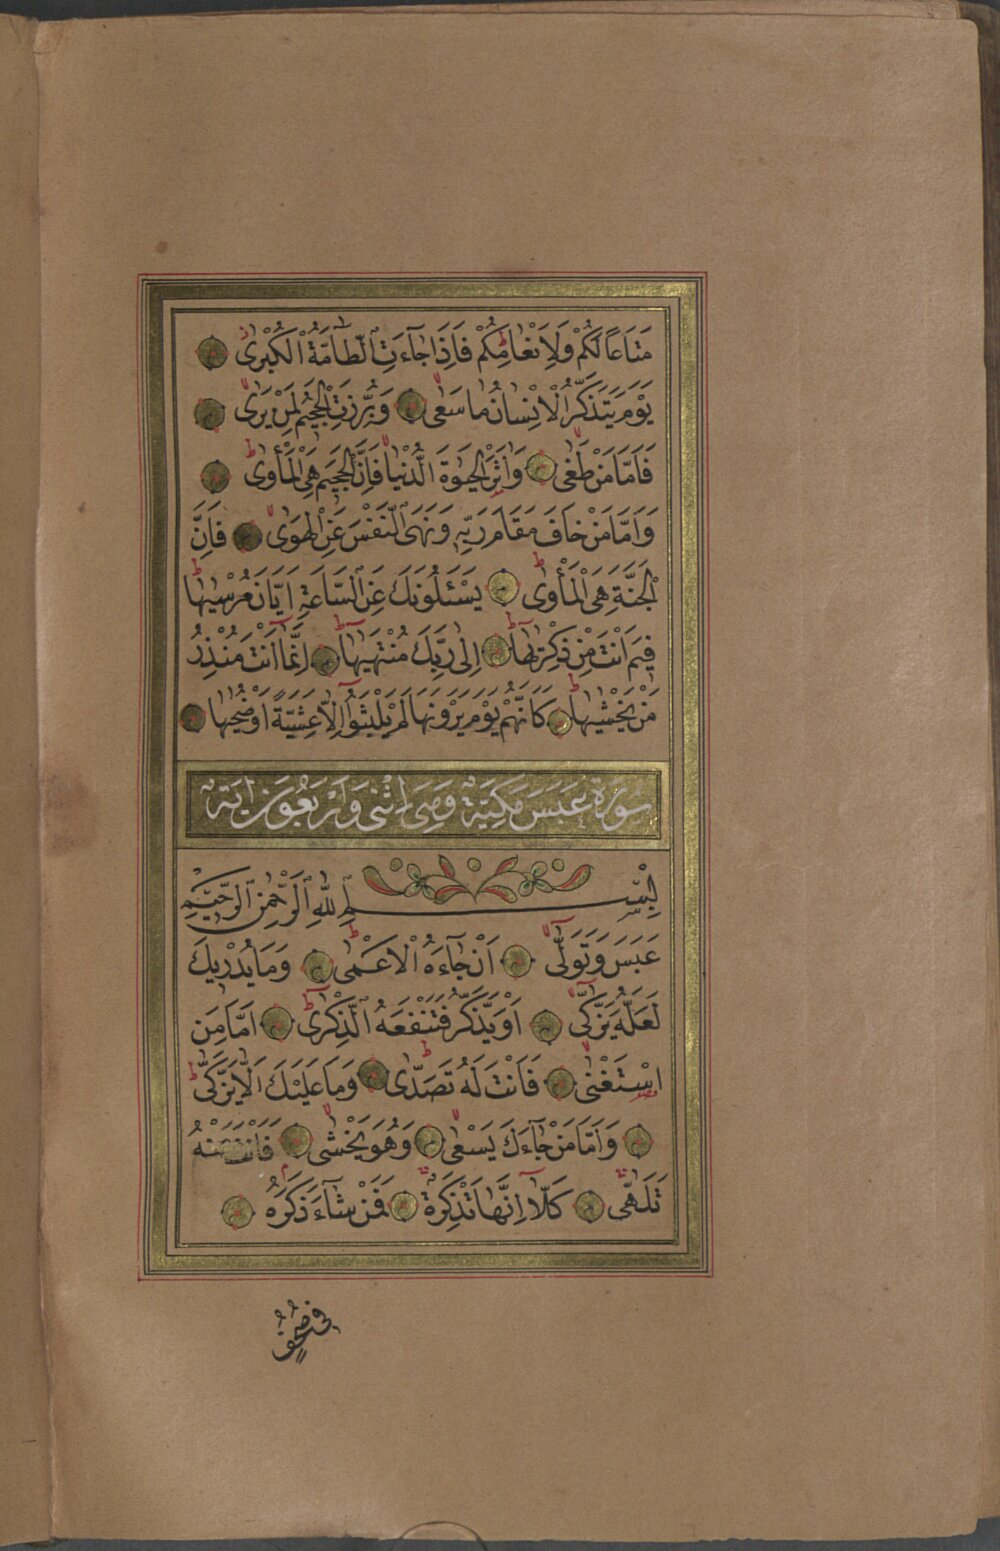 مَتَاعًا لَكُمْ وَلِاَنْعَامِكُمْ فَاِذَا جَٓاءَتِ الطَّٓامَّةُ الْكُبْرٰى
يَوْمَ يَتَذَكَّرُ الْاِنْسَانُ مَا سَعٰى وَبُرِّزَتِ الْجَحٖيمُ لِمَنْ يَرٰى
فَاَمَّا مَنْ طَغٰى وَاٰثَرَ الْحَيٰوةَ الدُّنْيَا فَاِنَّ الْجَحٖيمَ هِيَ الْمَأْوٰى
وَاَمَّا مَنْ خَافَ مَقَامَ رَبِّهٖ وَنَهَى النَّفْسَ عَنِ الْهَوٰى فَاِنَّ
الْجَنَّةَ هِيَ الْمَأْوٰى يَسْـَٔلُونَكَ عَنِ السَّاعَةِ اَيَّانَ مُرْسٰيهَا
فٖيمَ اَنْتَ مِنْ ذِكْرٰيهَا اِلٰى رَبِّكَ مُنْتَهٰيهَا اِنَّمَٓا اَنْتَ مُنْذِرُ
مَنْ يَخْشٰيهَا كَاَنَّهُمْ يَوْمَ يَرَوْنَهَا لَمْ يَلْبَثُٓوا اِلَّا عَشِيَّةً اَوْ ضُحٰيهَا
سُورَةُ عَبَسَ مَكِّيَّةٌ وَهِيَ اِثْنٰى وَاَرْبَعُونَ اٰيَة
بِسْمِ اللّٰهِ الرَّحْمٰنِ الرَّحٖيمِ
عَبَسَ وَتَوَلّٰى اَنْ جَٓاءَهُ الْاَعْمٰى وَمَا يُدْرٖيكَ
لَعَلَّهُ يَزَّكّٰى اَوْ يَذَّكَّرُ فَتَنْفَعَهُ الذِّكْرٰى اَمَّا مَنِ
اسْتَغْنٰى فَاَنْتَ لَهُ تَصَدّٰى وَمَا عَلَيْكَ اَلَّا يَزَّكّٰى
وَاَمَّا مَنْ جَٓاءَكَ يَسْعٰى وَهُوَ يَخْشٰى فَاَنْتَ عَنْهُ
تَلَهّٰى كَلَّٓا اِنَّهَا تَذْكِرَةٌ فَمَنْ شَٓاءَ ذَكَرَهُ
فٖى صُحُفٍ